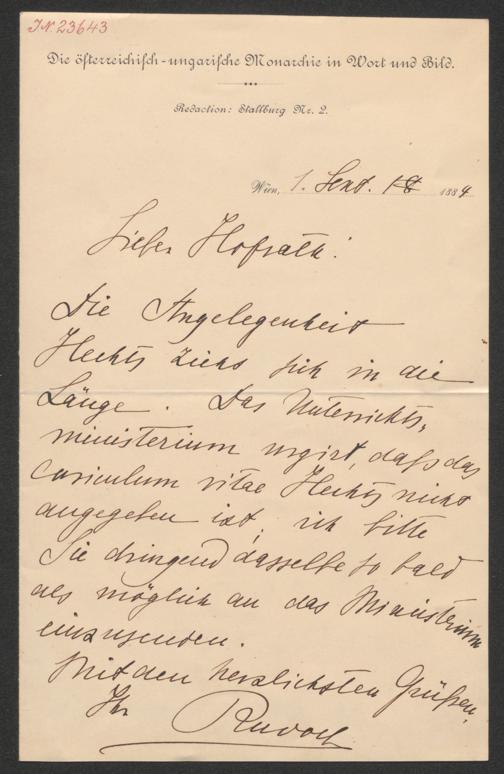 I.N. 23643
Die österreichisch-ungarische Monarchie in Wort und Bild.
Redaction: Stallburg Nr. 2.
Wien, 1. Sept. 18 1884
Lieber Hofrath!
Die Angelegenheit
Hechts zieht sich in die
Länge. Das Unterrichts-
ministerium urgirt, daß das
curiculum vitae Hechts nicht
angegeben ist, ich bitte
Sie dringend dasselbe so bald
als möglich an das Ministerium
einzusenden.
Mit den herzlichsten Grüßen,
Ihr Rudolf